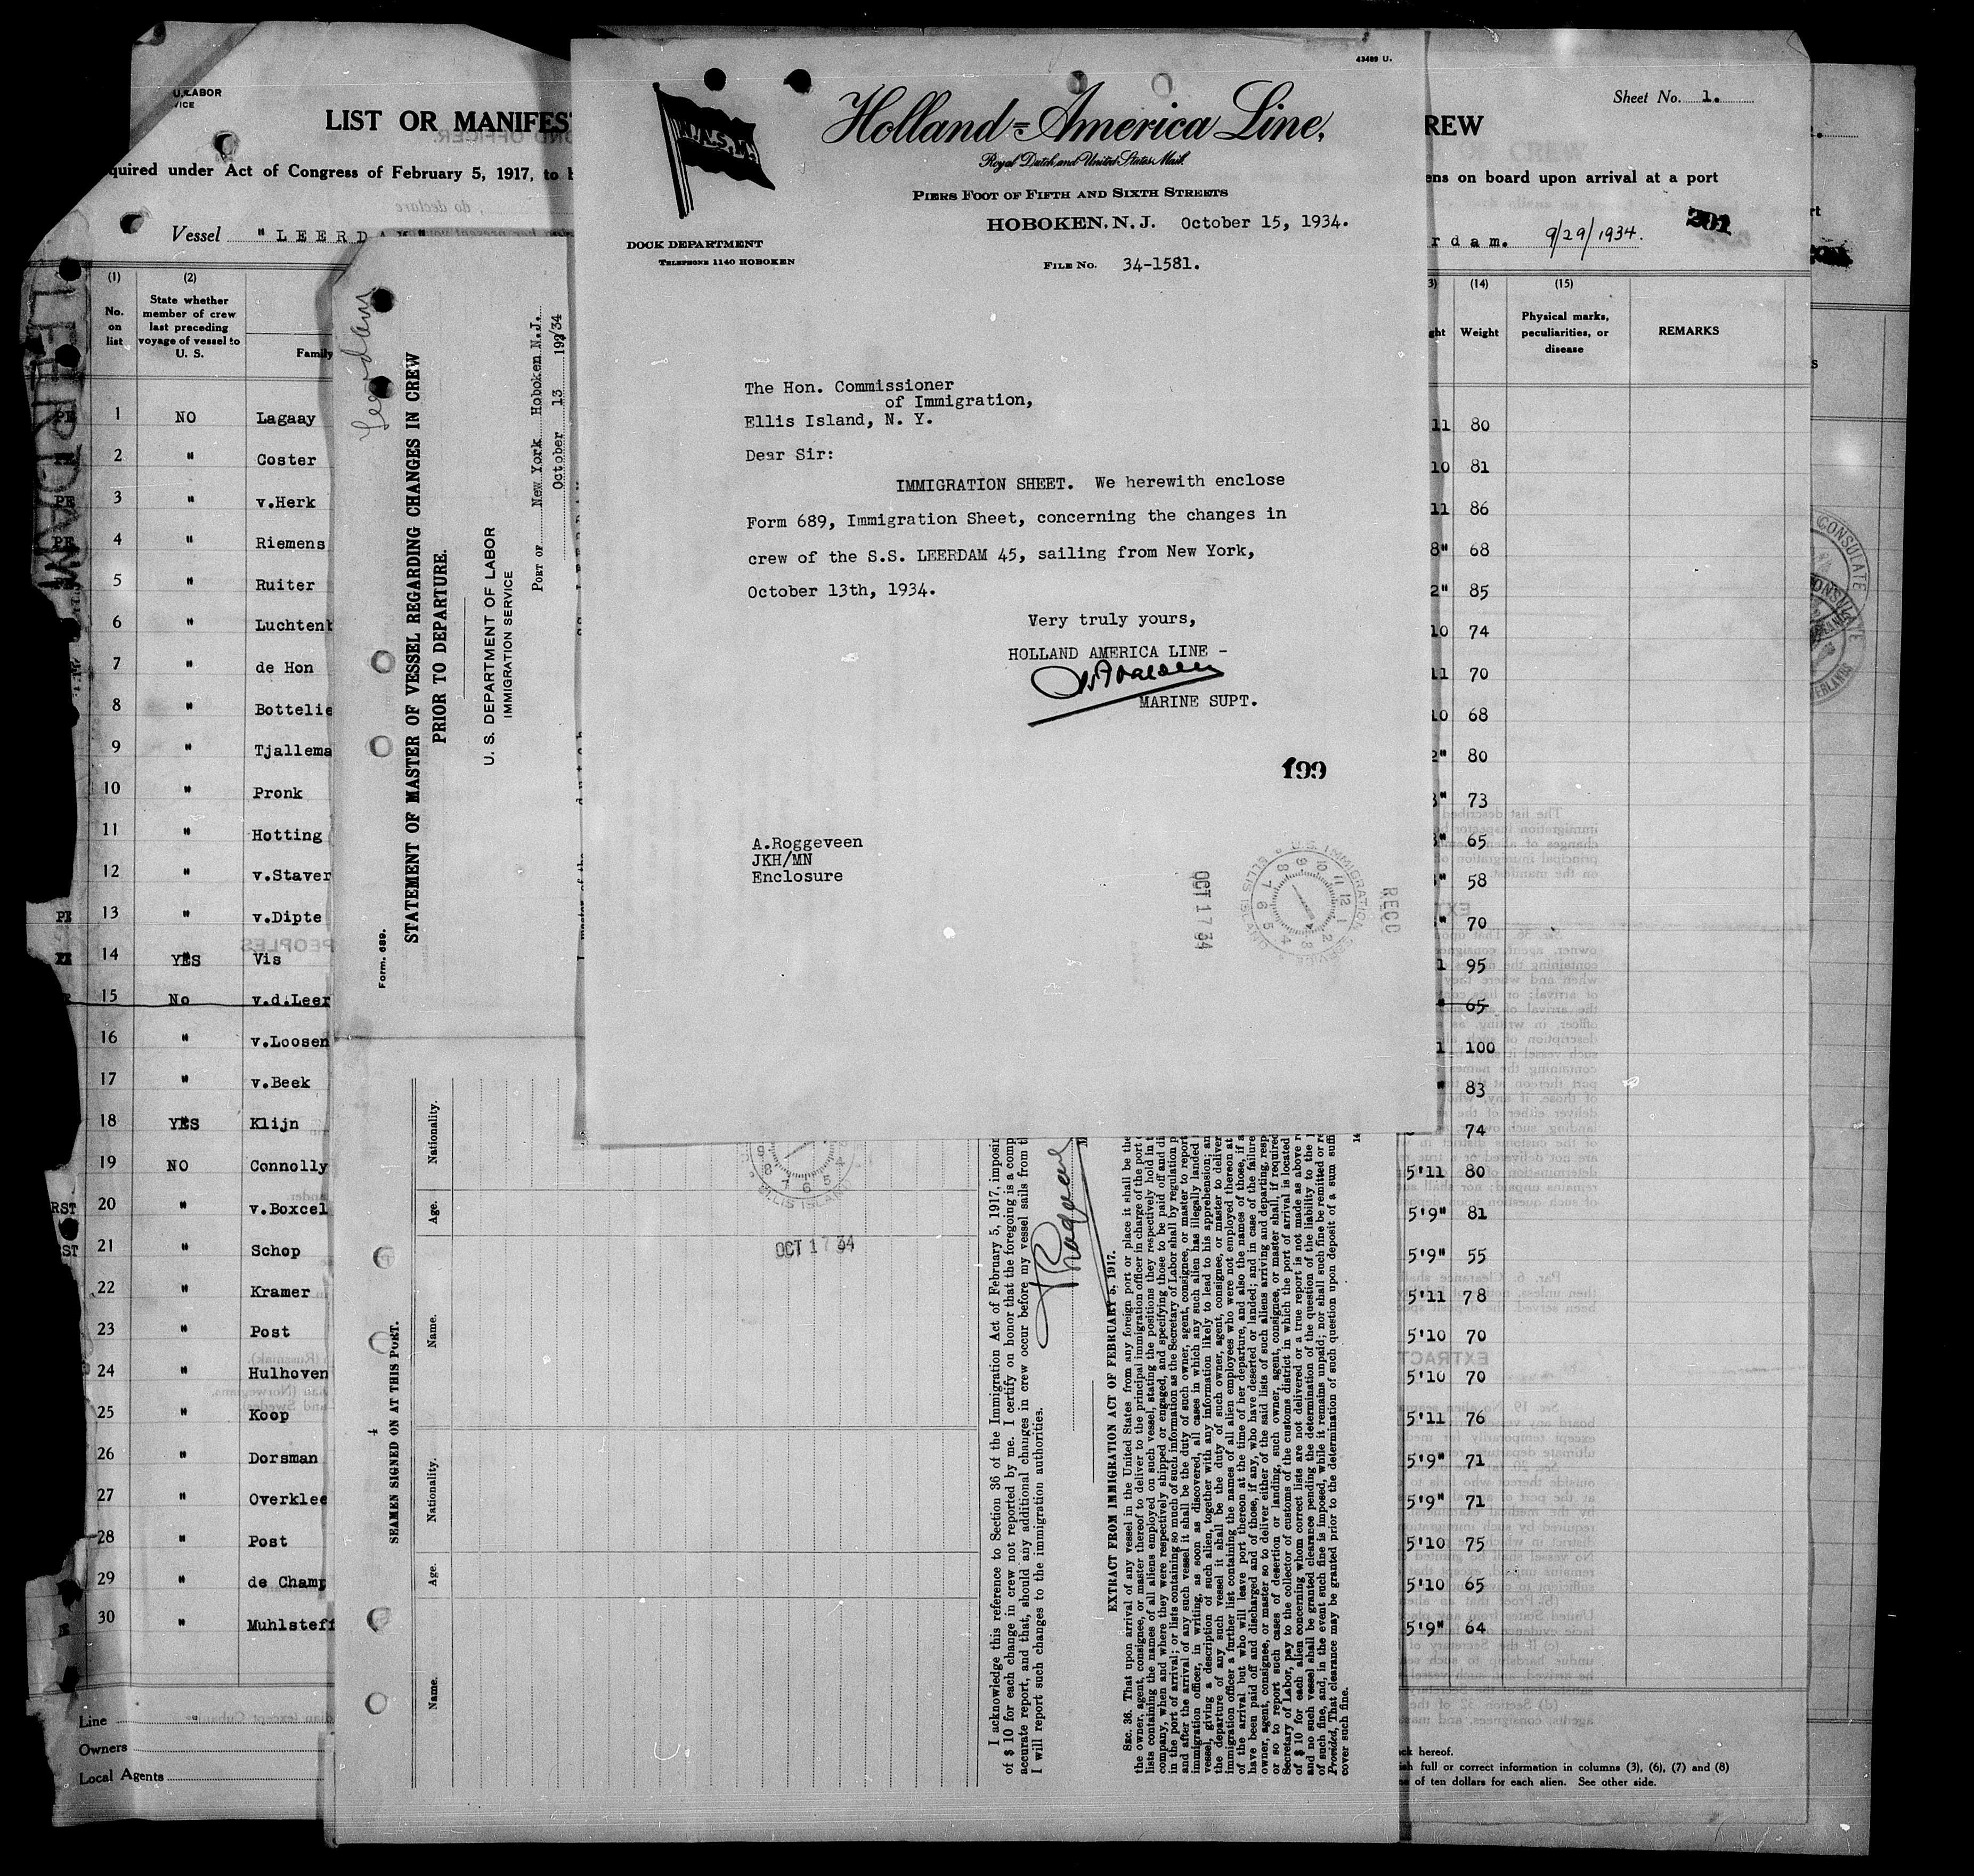 43489 U.
N.A.S.M.
Holland=America Line,
Royal Dutch and United States Mail
PIERS FOOT OF FIFTH AND SIXTH STREETS
HOBOKEN, N. J. October 15, 1934.
DOCK DEPARTMENT
TELEPHONE 1140 HOBOKEN
FILE No. 34-1581.
The Hon. Commissioner
of Immigration,
Ellis Island, N. Y.
Dear Sir:
IMMIGRATION SHEET. We herewith enclose
Form 689, Immigration Sheet, concerning the changes in
crew of the S.S. LEERDAM 45, sailing from New York,
October 13th, 1934.
Very truly yours,
HOLLAND AMERICA LINE -
MARINE SUPT.
199
A.Roggeveen
JKH/MN
Enclosure
U.S. IMMIGRATION SERVICE
ELLIS ISLAND
OCT 17 34
RECD
U. LABOR
VICE
LIST OR MANIFES
REW
Sheet No. 1.
quired under Act of Congress of February 5, 1917, to b
ens on board upon arrival at a port
Vessel "LEERDAM"
rdam. 9/29/1934.
201
LEERDAM
(1) (2)
No. on list
State whether member of crew last preceding voyage of vessel to U. S.
Family
3) (14) (15)
ght Weight
Physical marks, peculiarities, or disease
REMARKS
1 NO Lagaay 11 80
2 " Coster 10 81
3 " v.Herk 11 86
4 " Riemens 8" 68
5 " Ruiter 2" 85
6 " Luchtenb 10 74
7 " de Hon 11 70
8 " Bottelie 10 68
9 " Tjallema 2" 80
10 " Pronk 73
11 " Hotting 65
12 " v.Staver 58
13 " v.Dipte 70
14 YES Vis 95
15 No v.d.Leer 65
16 " v.Loosen 100
17 " v.Beek 83
18 YES Klijn 74
19 NO Connolly 5'11 80
20 " v.Boxcel 5'9" 81
21 " Schop 5'9" 55
22 " Kramer 5'11 78
23 " Post 5'10 70
24 " Hulhoven 5'10 70
25 " Koop 5'11 76
26 " Dorsman 5'9" 71
27 " Overklee 5'9" 71
28 " Post 5'10 75
29 " de Champ 5'10 65
30 " Muhlsteff 5'9" 64
Line
Owners
Local Agents
ck hereof.
sh full or correct information in columns (3), (6), (7) and (8)
e of ten dollars for each alien. See other side.
Leerdam
Form. 689.
STATEMENT OF MASTER OF VESSEL REGARDING CHANGES IN CREW
PRIOR TO DEPARTURE.
U. S. DEPARTMENT OF LABOR
IMMIGRATION SERVICE
PORT OF New York Hoboken N.J.
October 13 1934
SEAMEN SIGNED ON AT THIS PORT.
Name. Age. Nationality. Name. Age. Nationality.
ELLIS ISLAND
OCT 17 34
I acknowledge this reference to Section 36 of the Immigration Act of February 5, 1917, imposin
of $ 10 for each change in crew not reported by me. I certify on honor that the foregoing is a comp
accurate report, and that, should any additional changes in crew occur before my vessel sails from th
I will report such changes to the immigration authorities.
EXTRACT FROM IMMIGRATION ACT OF FEBRUARY 5, 1917.
SEC. 36. That upon arrival of any vessel in the United States from any foreign port or place it shall be the
the owner, agent, consignee, or master thereof to deliver to the principal immigration officer in charge of the port
lists containing the names of all aliens employed on such vessel, stating the positions they respectively hold in t
company, when and where they were respectively shipped or engaged, and specifying those to be paid off and di
in the port of arrival; or lists containing so much of such information as the Secretary of Labor shall by regulation p
and after the arrival of any such vessel it shall be the duty of such owner, agent, consignee, or master to report
immigration officer, in writing, as soon as discovered, all cases in which any such alien has illegally landed
vessel, giving a description of such alien, together with any information likely to lead to his apprehension; an
the departure of any such vessel it shall be the duty of such owner, agent, consignee, or master to deliver
immigration officer a further list containing the names of all alien employees who were not employed thereon at
of the arrival but who will leave port thereon at the time of her departure, and also the names of those, if a
have been paid off and discharged and of those, if any, who have deserted or landed; and in case of the failure
owner, agent, consignee, or master so to deliver either of the said lists of such aliens arriving and departing, resp
or so to report such cases of desertion or landing, such owner, agent, consignee, or master shall, if required
Secretary of Labor, pay to the collector of customs of the customs district in which the port of arrival is located
of $ 10 for each alien concerning whom correct lists are not delivered or a true report is not made as above r
and no such vessel shall be granted clearance pending the determination of the question of the liability to the
of such fine, and, in the event such fine is imposed, while it remains unpaid; nor shall such fine be remitted or re
Provided, That clearance may be granted prior to the determination of such question upon deposit of a sum suffi
cover such fine.